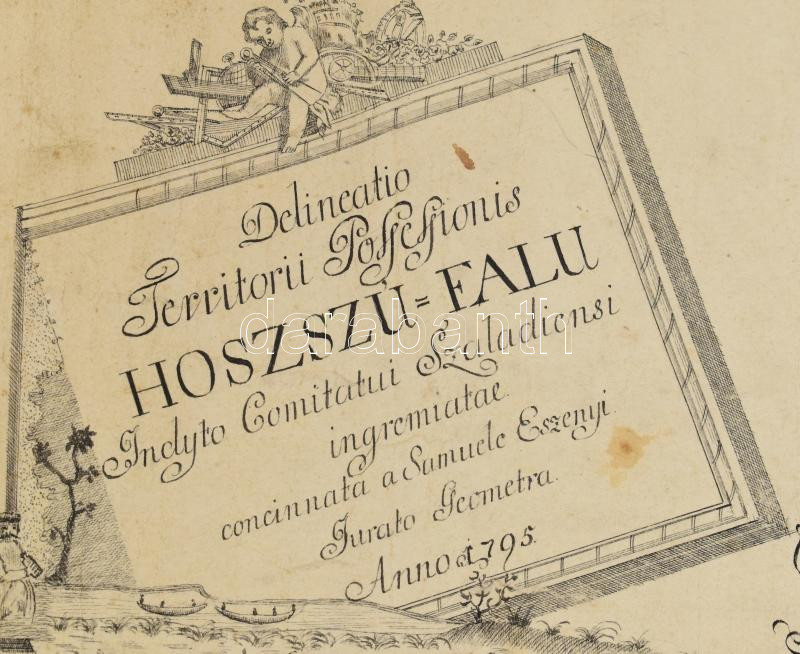 Delineatio
Territorii Possessionis
HOSZSZÚ=FALU
Inclyto Comitatui Szaladiensi
ingremiatae.
concinnata a Samuele Eszenyi
Jurato Geometra.
Anno 1795.
darabanth